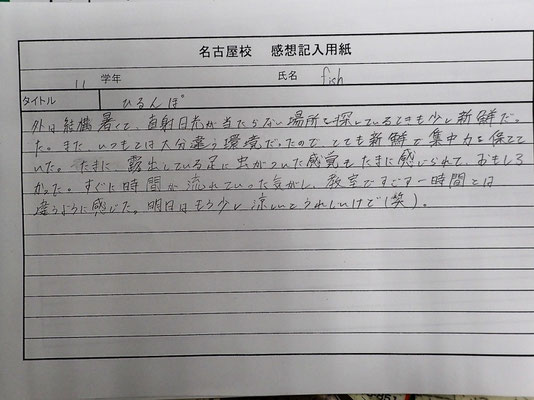 名古屋校 感想記入用紙
11 学年 氏名 fish
タイトル ひるんぽ
外は結構暑くて、直射日光が当たらない場所を探しているときも少し新鮮だっ
た。また、いつもとは大分違う環境だったので、とても新鮮で集中力を保てて
いた。たまに露出している足に虫がついた感覚もたまに感じられて、おもしろ
かった。すぐに時間が流れていった気がし、教室ですごす一時間とは
違うように感じた。明日はもう少し涼しいとうれしいけど(笑)。